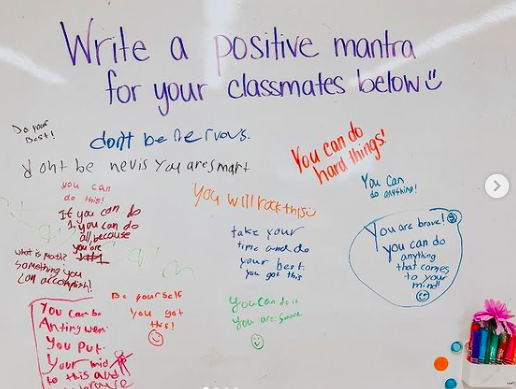 Write a positive mantra
for your classmates below
Do your
Best!
don't be nervous.
dont be nevis You are smart
You can do
hard things!
You Can
do anything!
you can
do this!
You will rock this
If you can do
1, you can do
all, because
you are
what is
something you
can accomplish!
take your
time and do
your best
you got this
You are brave!
you can do
anything
that comes
to your
mind!
Be yourself
you got
this!
you can do it
You are smart
You can be
Anting wen
You put
Your mid
to this and